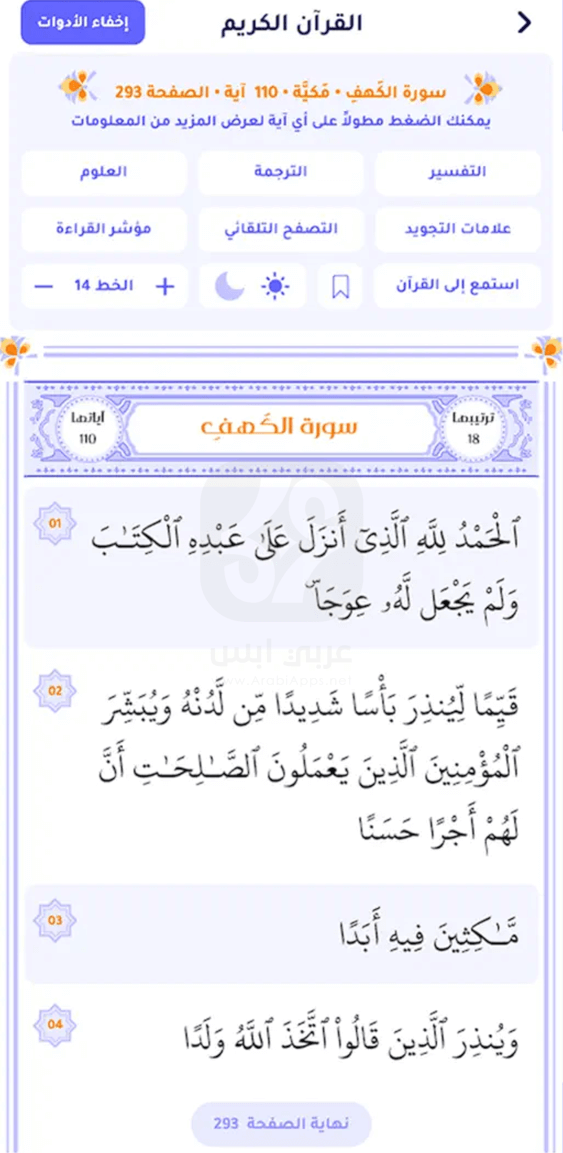 القرآن الكريم
إخفاء الأدوات
سورة الكَهفِ • مَكيَّة • 110 آية • الصفحة 293
يمكنك الضغط مطولاً على أي آية لعرض المزيد من المعلومات
التفسير الترجمة العلوم
علامات التجويد التصفح التلقائي مؤشر القراءة
استمع إلى القرآن + الخط 14 −
ترتيبها 18
سورة الكَهفِ
آياتها 110
01
ٱلْحَمْدُ لِلَّهِ ٱلَّذِىٓ أَنزَلَ عَلَىٰ عَبْدِهِ ٱلْكِتَـٰبَ
وَلَمْ يَجْعَل لَّهُۥ عِوَجَاۜ
عربي ابس
www.ArabiApps.net
02
قَيِّمًا لِّيُنذِرَ بَأْسًا شَدِيدًا مِّن لَّدُنْهُ وَيُبَشِّرَ
ٱلْمُؤْمِنِينَ ٱلَّذِينَ يَعْمَلُونَ ٱلصَّـٰلِحَـٰتِ أَنَّ
لَهُمْ أَجْرًا حَسَنًا
03
مَّـٰكِثِينَ فِيهِ أَبَدًا
04
وَيُنذِرَ ٱلَّذِينَ قَالُوا۟ ٱتَّخَذَ ٱللَّهُ وَلَدًا
نهاية الصفحة 293